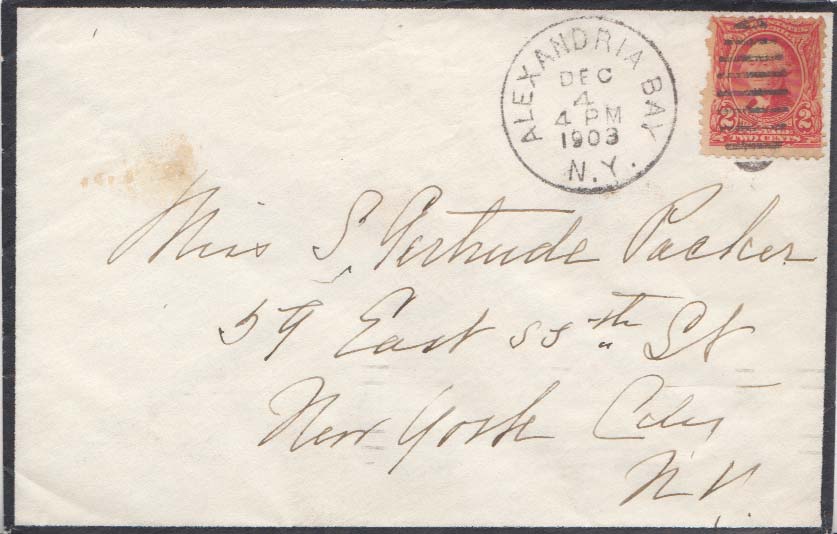 ALEXANDRIA BAY
DEC
4
4 PM
1903
N.Y.
2 2
TWO CENTS
Miss S. Gertrude Packer
59 East 55th St
New York City
N.Y.